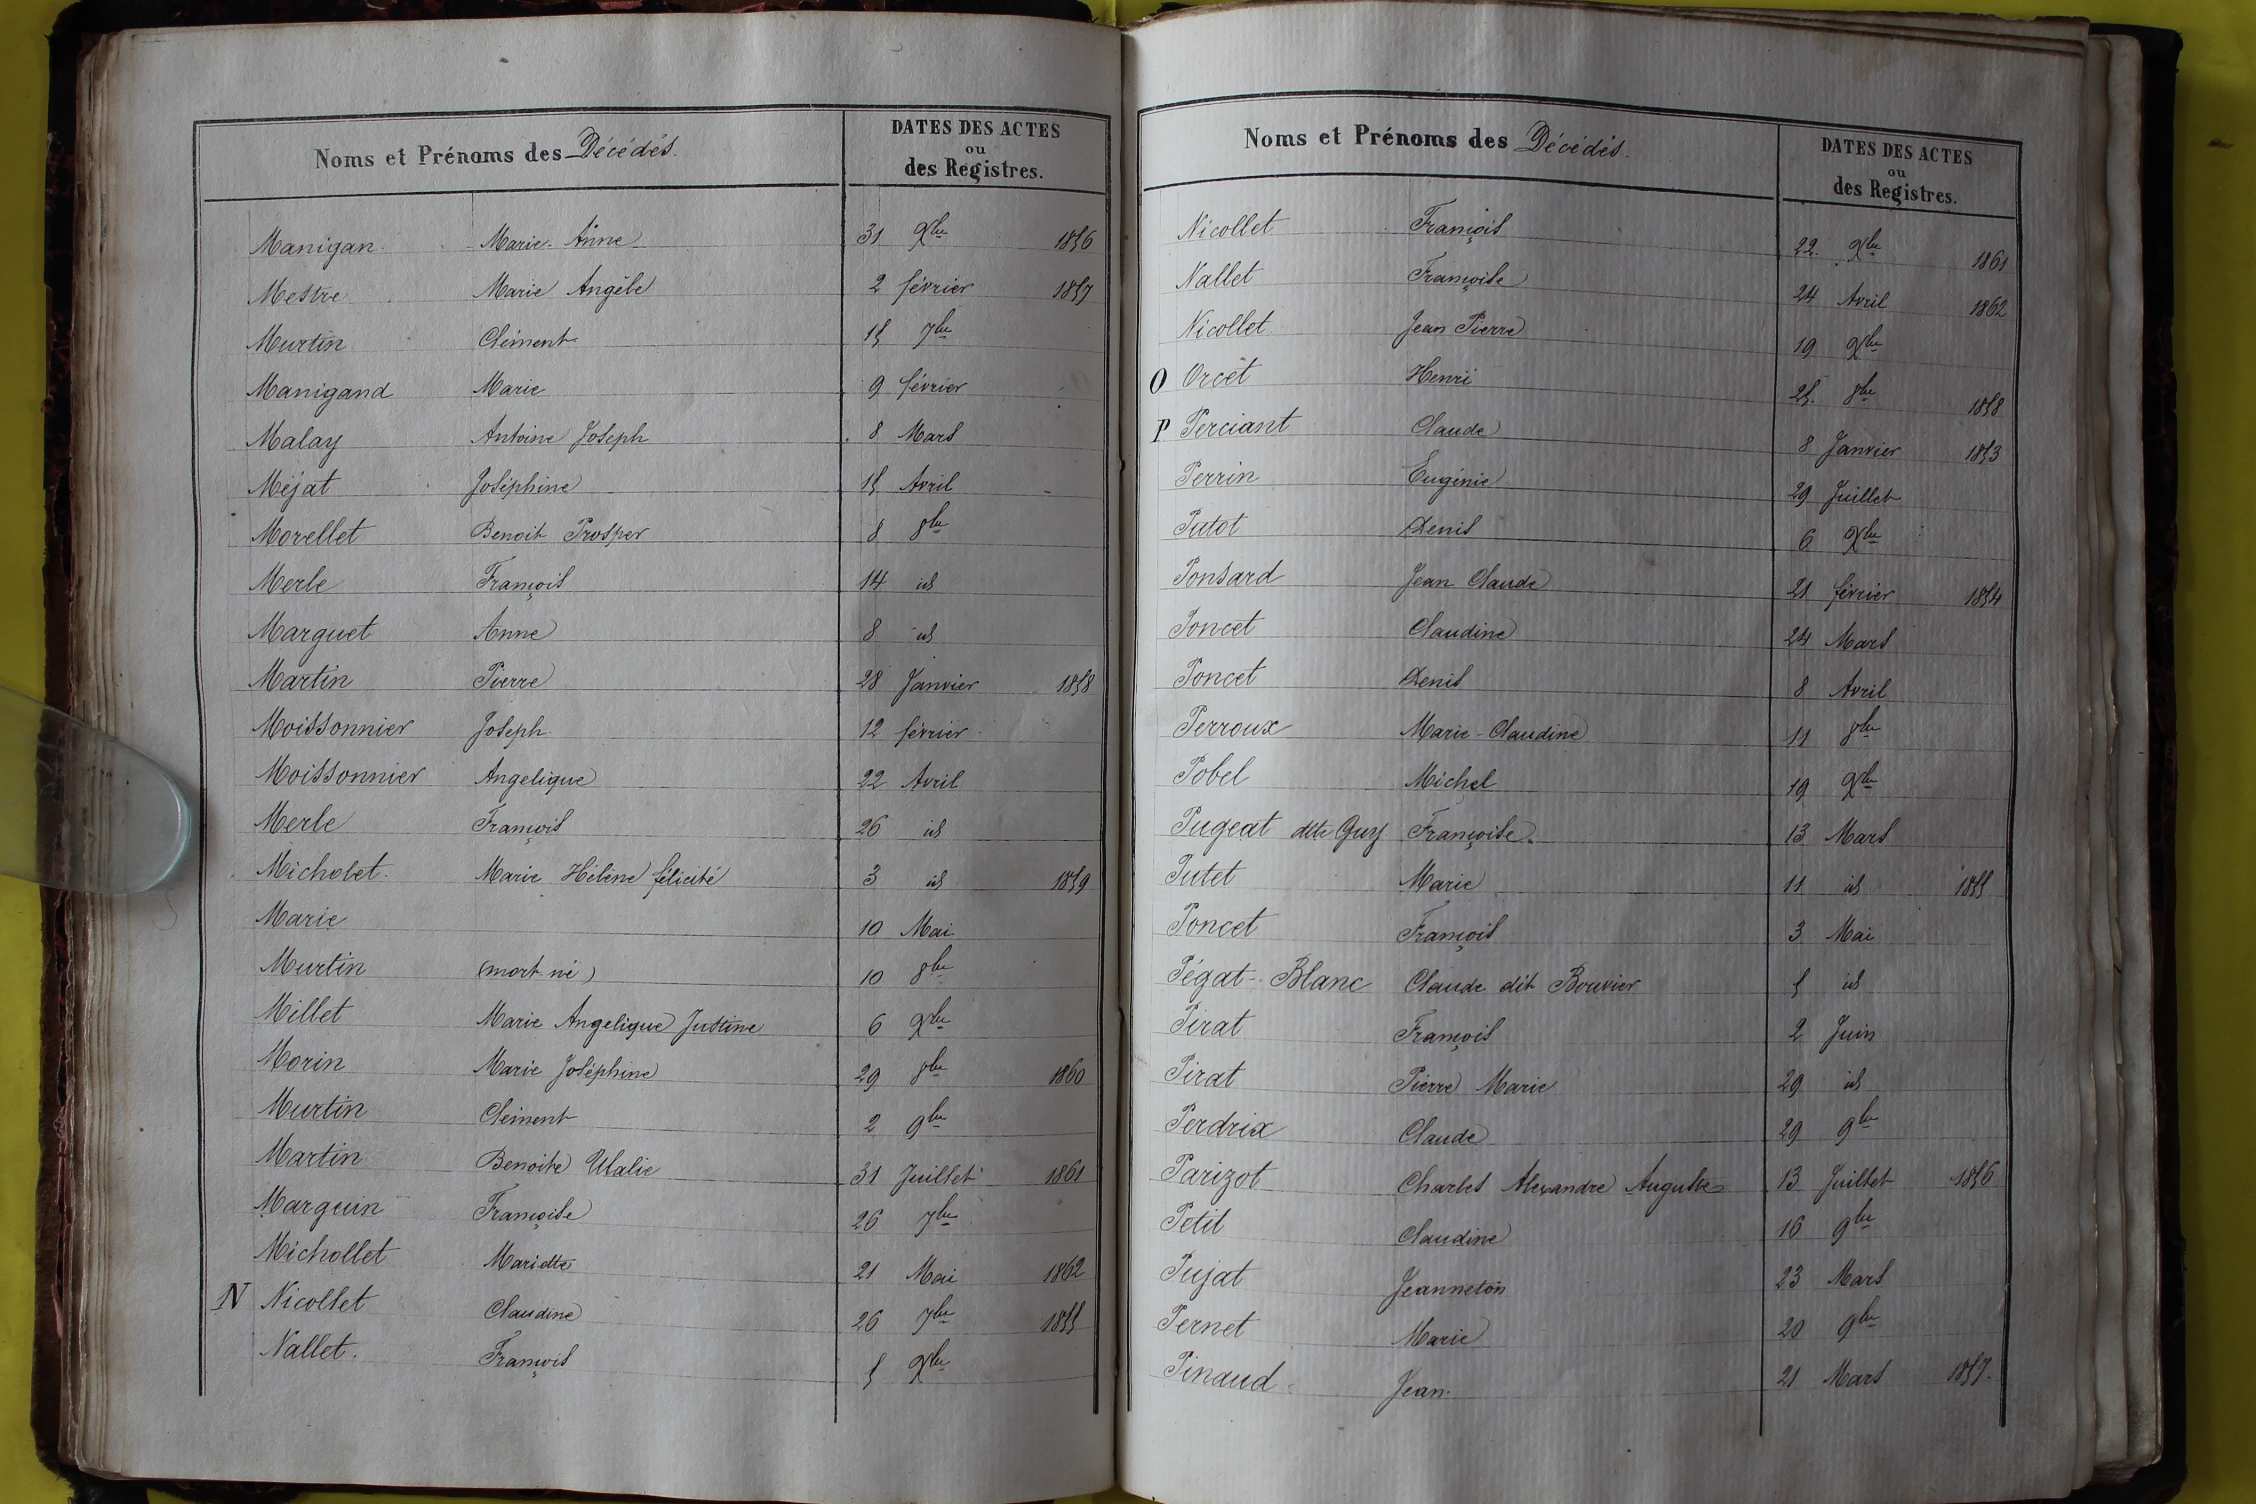 Noms et Prénoms des Décédés.
DATES DES ACTES
ou
des Registres.
Manigan Marie-Anne 31 Xbre 1856
Mestre Marie Angèle 2 février 1857
Murtin Clément 15 7bre
Manigand Marie 9 février
Malay Antoine Joseph 8 Mars
Méjat Joséphine 15 Avril
Morellet Benoit Prosper 8 8bre
Merle François 14 id
Marguet Anne 8 id
Martin Pierre 28 Janvier 1858
Moissonnier Joseph 12 février
Moissonnier Angelique 22 Avril
Merle François 26 id
Micholet Marie Hélène félicité 3 id 1859
Marie 10 Mai
Murtin (mort né) 10 8bre
Millet Marie Angelique Justine 6 Xbre
Morin Marie Joséphine 29 8bre 1860
Murtin Clément 2 9bre
Martin Benoite Ulalie 31 Juillet 1861
Marguin Françoise 26 7bre
Michollet Mariette 21 Mai 1862
N Nicollet Claudine 26 7bre 1855
Nallet. François 5 Xbre
Noms et Prénoms des Décédés.
DATES DES ACTES
ou
des Registres.
Nicollet François 22 Xbre 1861
Nallet Françoise 24 Avril 1862
Nicollet Jean Pierre 19 Xbre
O Orcet Henri 25 8bre 1858
P Perciant Claude 8 Janvier 1853
Perrin Eugénie 29 Juillet
Putot Denis 6 Xbre
Ponsard Jean Claude 21 février 1854
Poncet Claudine 24 Mars
Poncet Denis 8 Avril
Perroux Marie-Claudine 11 8bre
Pobel Michel 19 Xbre
Pugeat dite Guy Françoise 13 Mars
Putet Marie 11 id 1855
Poncet François 3 Mai
Pégat-Blanc Claude dit Bouvier 5 id
Pirat François 2 Juin
Pirat Pierre Marie 29 id
Perdrix Claude 29 9bre
Parizot Charles Alexandre Auguste 13 Juillet 1856
Petit Claudine 16 9bre
Pujat Jeanneton 23 Mars
Pernet Marie 20 9bre
Pinaud Jean 21 Mars 1857.